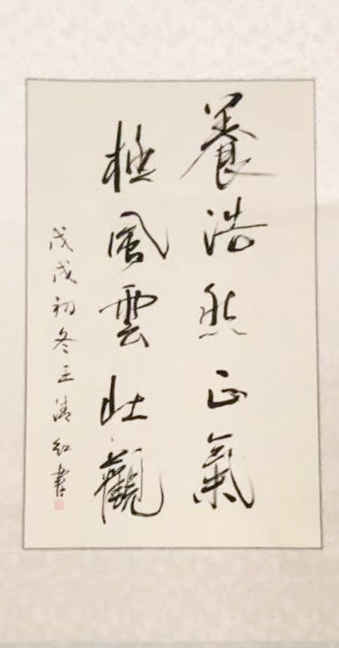 養浩然正氣
極風雲壯觀
戊戌初冬王清紅書